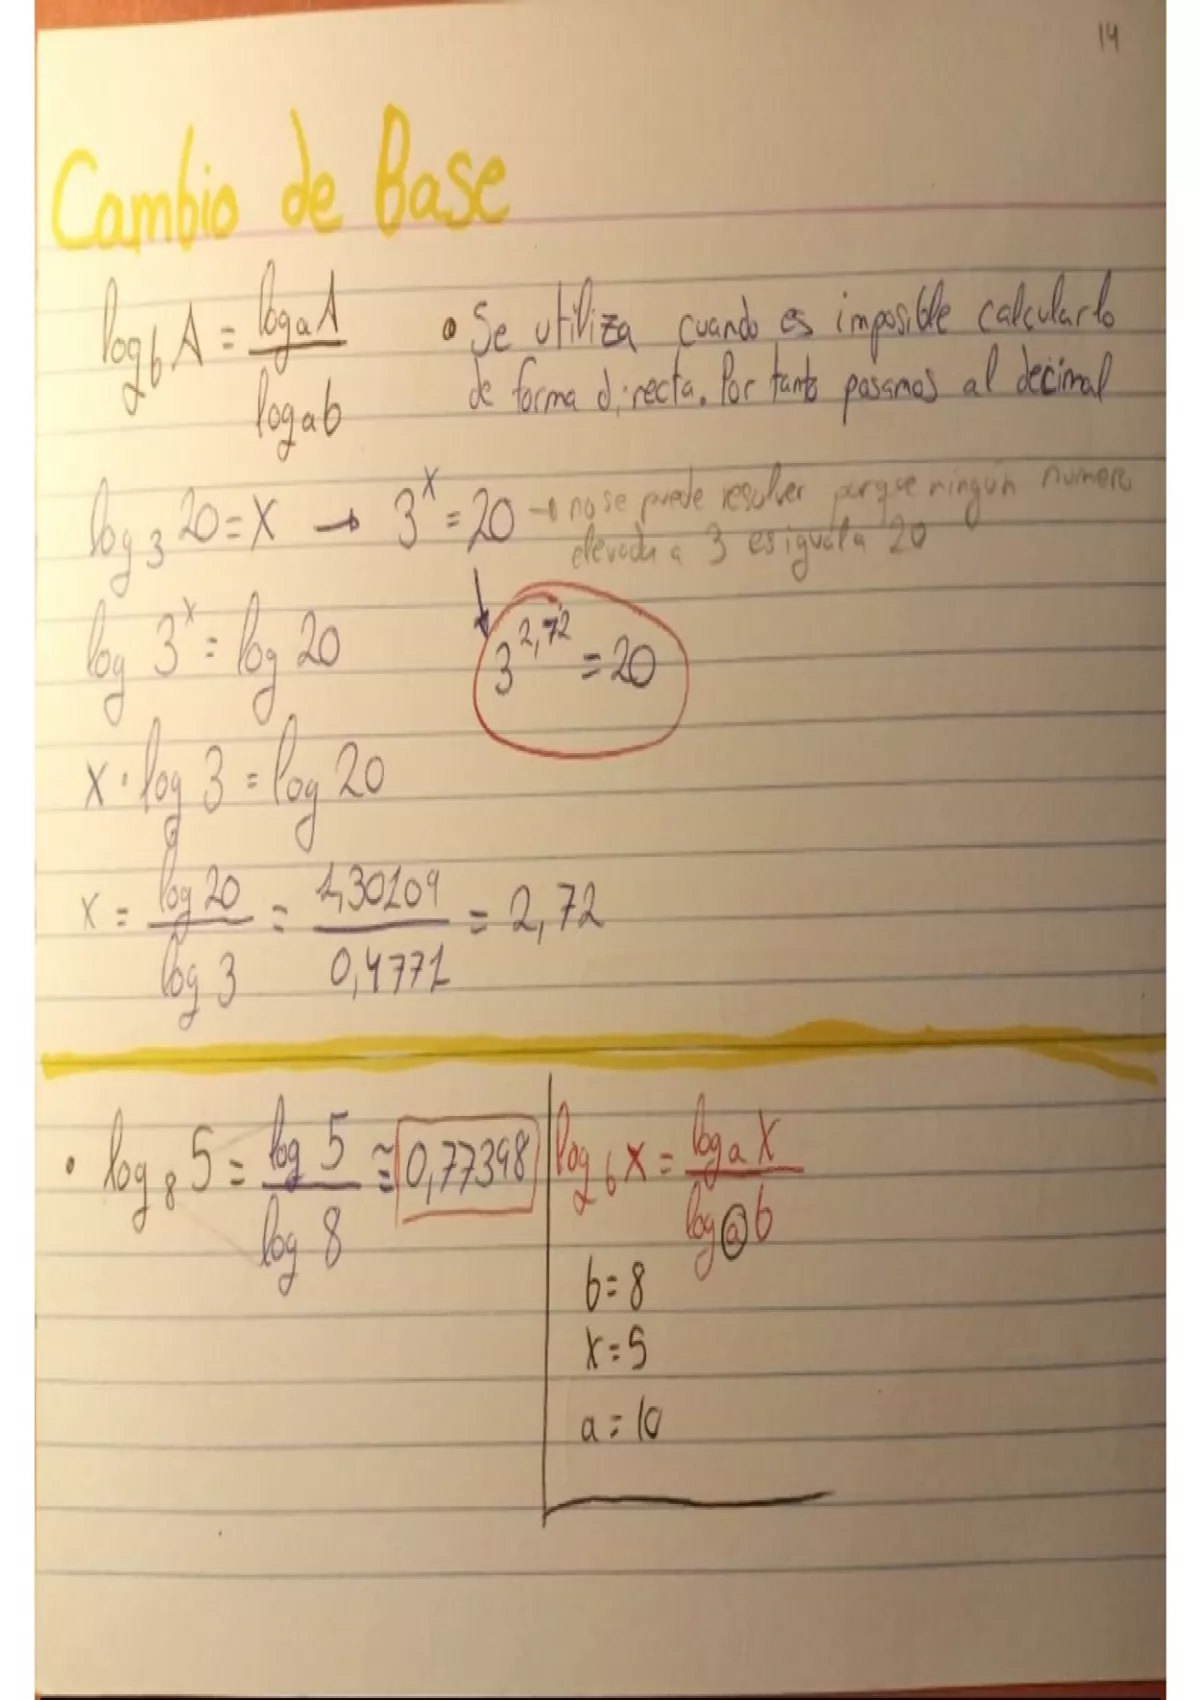 14
Cambio de Base
log_b A = log_a A / log_a b
• Se utiliza cuando es imposible calcularlo
de forma directa. Por tanto pasamos al decimal
log_3 20 = x → 3^x = 20 → no se puede resolver porque ningún numero
elevado a 3 es igual a 20
log 3^x = log 20
3^2,72 = 20
x · log 3 = log 20
x = log 20 / log 3 = 1,30109 / 0,4771 = 2,72
• log_8 5 = log 5 / log 8 ≅ 0,77398
log_b x = log_a x / log_a b
b = 8
x = 5
a = 10